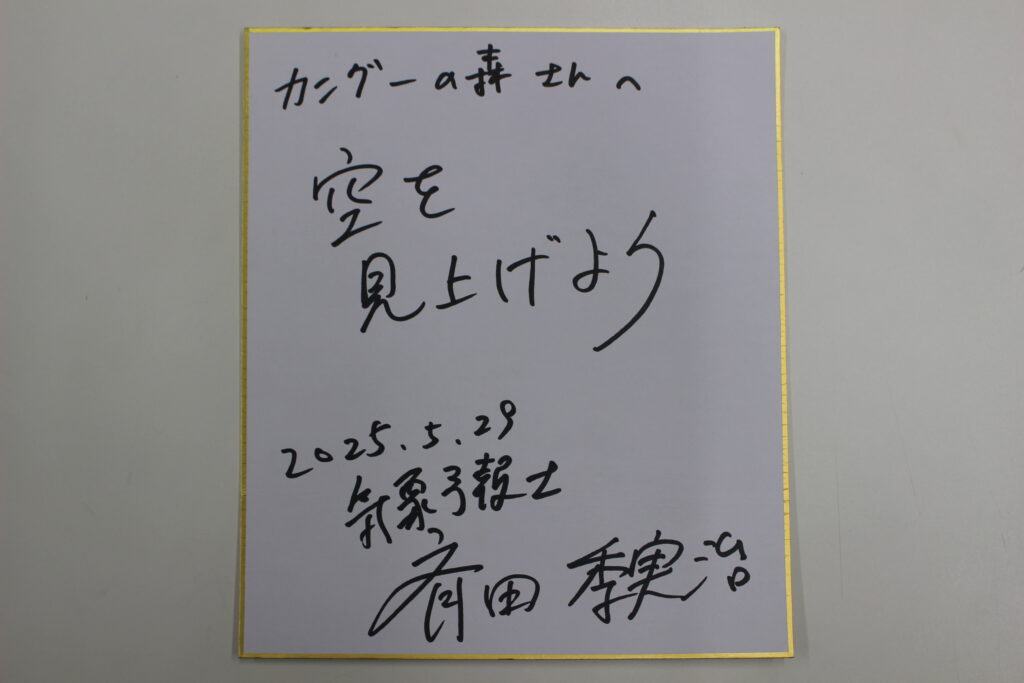 カングーの森 さんへ
空を
見上げよう
2025.5.29
気象予報士
斉田 季実治